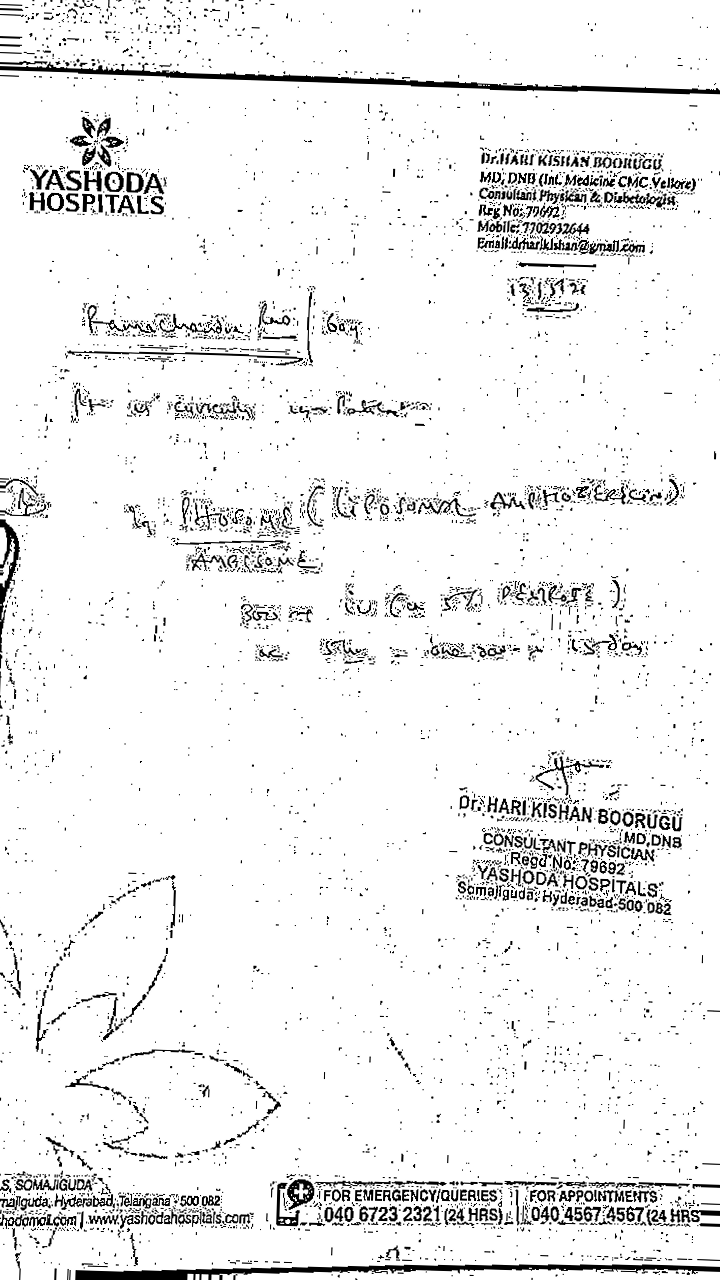 YASHODA
HOSPITALS
Dr.HARI KISHAN BOORUGU
MD, DNB (Int. Medicine CMC Vellore)
Consultant Physican & Diabetologist
Reg No: 79692
Mobile: 7702932644
Email:drharikishan@gmail.com
Ramachandra Rao 60y
Pt is currently
PHOSOME (LIPOSOMAL AMPHOTERICIN)
AMBISOME
300 IV 5% DEXTROSE)
Dr. HARI KISHAN BOORUGU
MD,DNB
CONSULTANT PHYSICIAN
Regd No: 79692
YASHODA HOSPITALS
Somajiguda, Hyderabad-500 082
S, SOMAJIGUDA
majiguda, Hyderabad, Telangana - 500 082
| www.yashodahospitals.com
FOR EMERGENCY/QUERIES
040 6723 2321 (24 HRS)
FOR APPOINTMENTS
040 4567 4567 (24 HRS